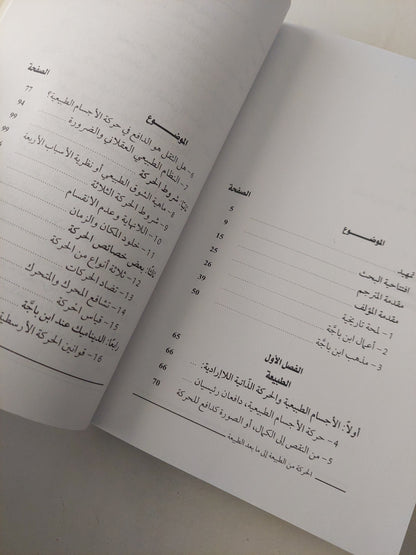 الموضـــوع الصفحة
تمهيد 5
افتتاحية البحث 9
مقدمة المترجم 15
مقدمة المؤلف 25
1- لمحة تاريخية 26
2- أعمال ابن باجّة 39
3- مذهب ابن باجّة 50
الفصل الأول
الطبيعة 65
أولاً: الأجسام الطبيعية والحركة الذّاتية اللاإرادية: 66
4- حركة الأجسام الطبيعية، دافعان رئيسيان 66
5- من النقص إلى الكمال، أو الصورة كدافع للحركة 70
الحركة من الطبيعة إلى ما بعد الطبيعة
الموضـــوع الصفحة
6- هل الثقل هو الدافع في حركة الأجسام الطبيعية؟ 77
7- النظام الطبيعي العقلاني والضرورة 94
ثانيًا: شروط الحركة 99
8- ماهية الشوق الطبيعي أو نظرية الأسباب الأربعة 99
9- شروط الحركة الثلاثة
10- اللانهاية وعدم الانقسام
11- خلود المكان والزمان
ثالثًا: بعض خصائص الحركة
12- ثلاثة أنواع من الحركة
13- تضاد الحركات
14- تشافع المحرك والمتحرك
15- قياس الحركة
رابعًا: الديناميك عند ابن باجّة
16- قوانين الحركة الأرسطية